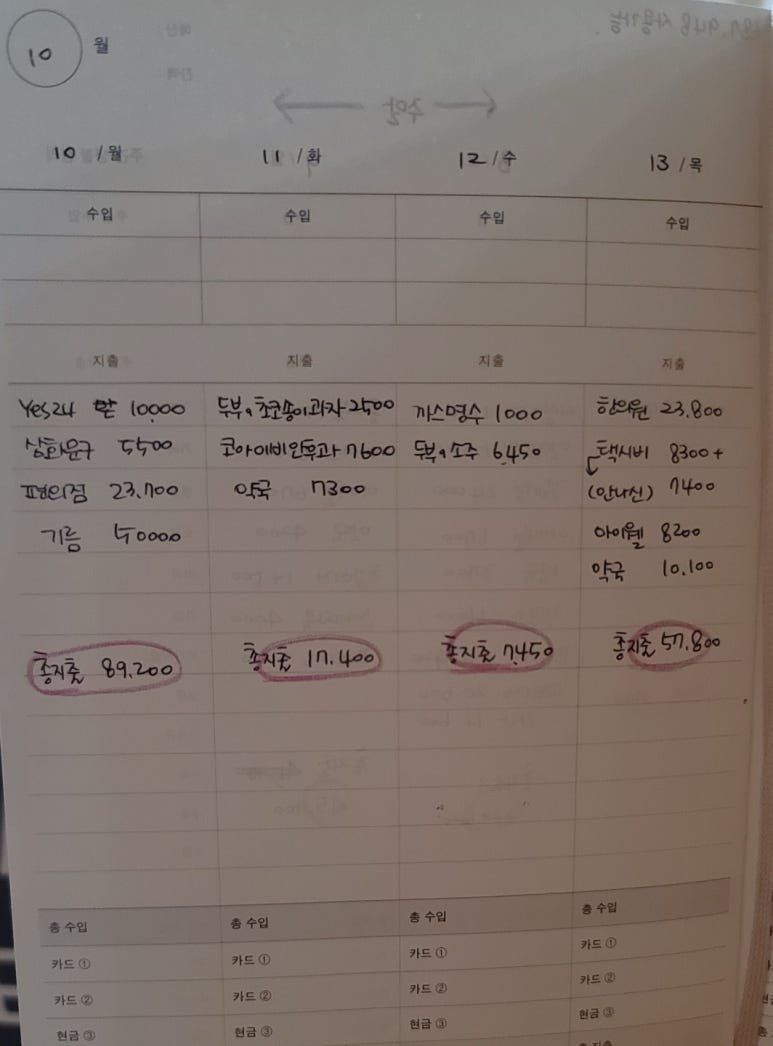 10 월
10 /월 11 /화 12 /수 13 /목
수입 수입 수입 수입
지출 지출 지출 지출
Yes24 10,000
삼화문구 5500
편의점 23,700
기름 50000
총지출 89,200
두부, 초코송이과자 2500
코아이비인후과 7600
약국 7300
총지출 17,400
까스명수 1000
두부, 소주 6,450
총지출 7,450
한의원 23,800
택시비 8300+
(안나신) 7400
아이웰 8200
약국 10,100
총지출 57,800
총 수입 총 수입 총 수입 총 수입
카드 ① 카드 ① 카드 ① 카드 ①
카드 ② 카드 ② 카드 ② 카드 ②
현금 ③ 현금 ③ 현금 ③ 현금 ③